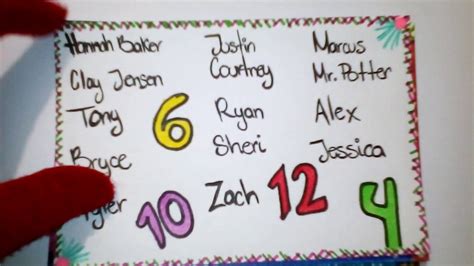 Hannah Baker
Clay Jensen
Tony
6
Bryce
Tyler
10
Justin
Courtney
Ryan
Sheri
Zach
12
Marcus
Mr. Potter
Alex
Jessica
4